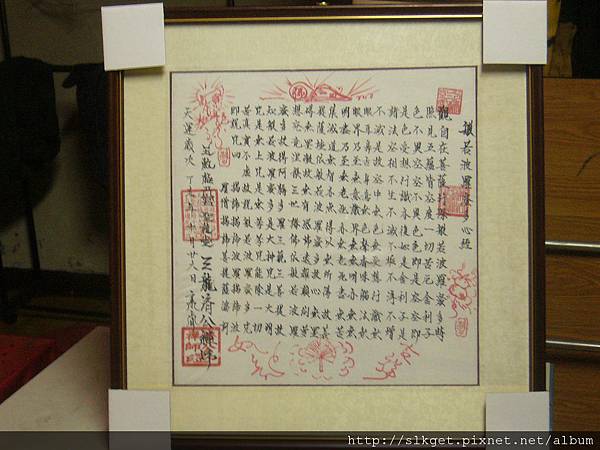 般若波羅蜜多心經
觀自在菩薩行深般若波羅蜜多時
照見五蘊皆空度一切苦厄舍利子
色不異空空不異色色即是空空即
是色受想行識亦復如是舍利子是
諸法空相不生不滅不垢不淨不增
不減是故空中無色無受想行識無
眼耳鼻舌身意無色聲香味觸法無
眼界乃至無意識界無無明亦無無
明盡乃至無老死亦無老死盡無苦
集滅道無智亦無得以無所得故菩
提薩埵依般若波羅蜜多故心無罣
礙無罣礙故無有恐怖遠離顛倒夢
想究竟涅槃三世諸佛依般若波羅
蜜多故得阿耨多羅三藐三菩提故
知般若波羅蜜多是大神咒是大明
咒是無上咒是無等等咒能除一切
苦真實不虛故說般若波羅蜜多咒
即說咒曰 揭諦揭諦波羅揭諦波
羅僧揭諦菩提薩婆訶
三龍濟公
天運歲次丁亥年十月廿八日
佛
http://slkget.pixnet.net/album